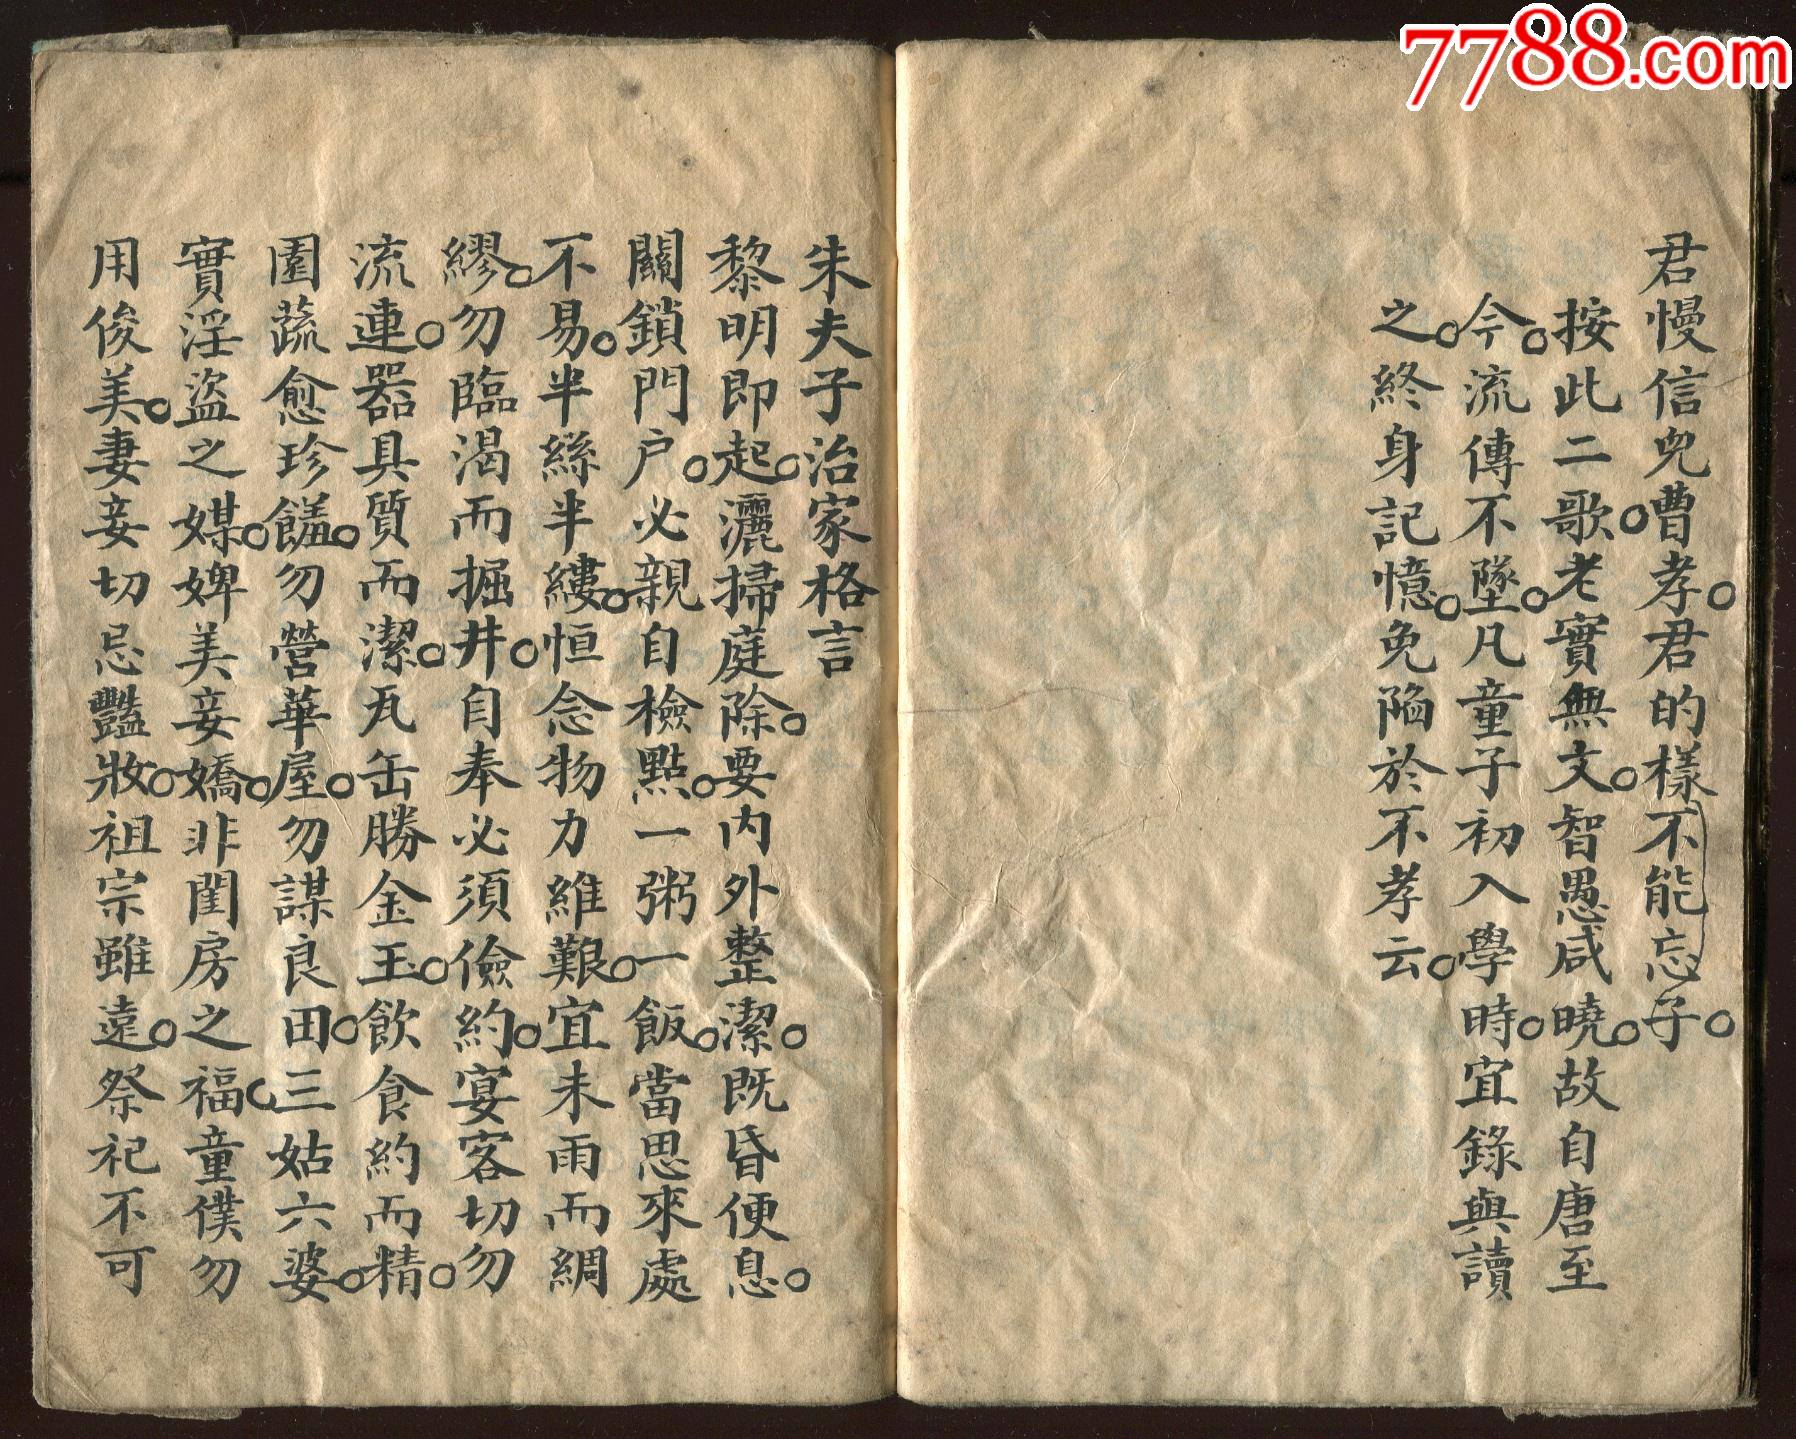 7788.com
君慢信兒曹孝。君的樣不能忘子。
按此二歌。老實無文。智愚咸曉。故自唐至
今。流傳不墜。凡童子初入學時。宜錄與讀
之。終身記憶。免陷於不孝云。
朱夫子治家格言
黎明即起。灑掃庭除。要內外整潔。既昏便息。
關鎖門户。必親自檢點。一粥一飯。當思來處
不易。半絲半縷。恒念物力維艱。宜未雨而綢
繆。勿臨渴而掘井。自奉必須儉約。宴客切勿
流連。器具質而潔。瓦缶勝金玉。飲食約而精。
園蔬愈珍饈。勿營華屋。勿謀良田。三姑六婆。
實淫盜之媒。婢美妾嬌。非閨房之福。童僕勿
用俊美。妻妾切忌豔妝。祖宗雖遠。祭祀不可